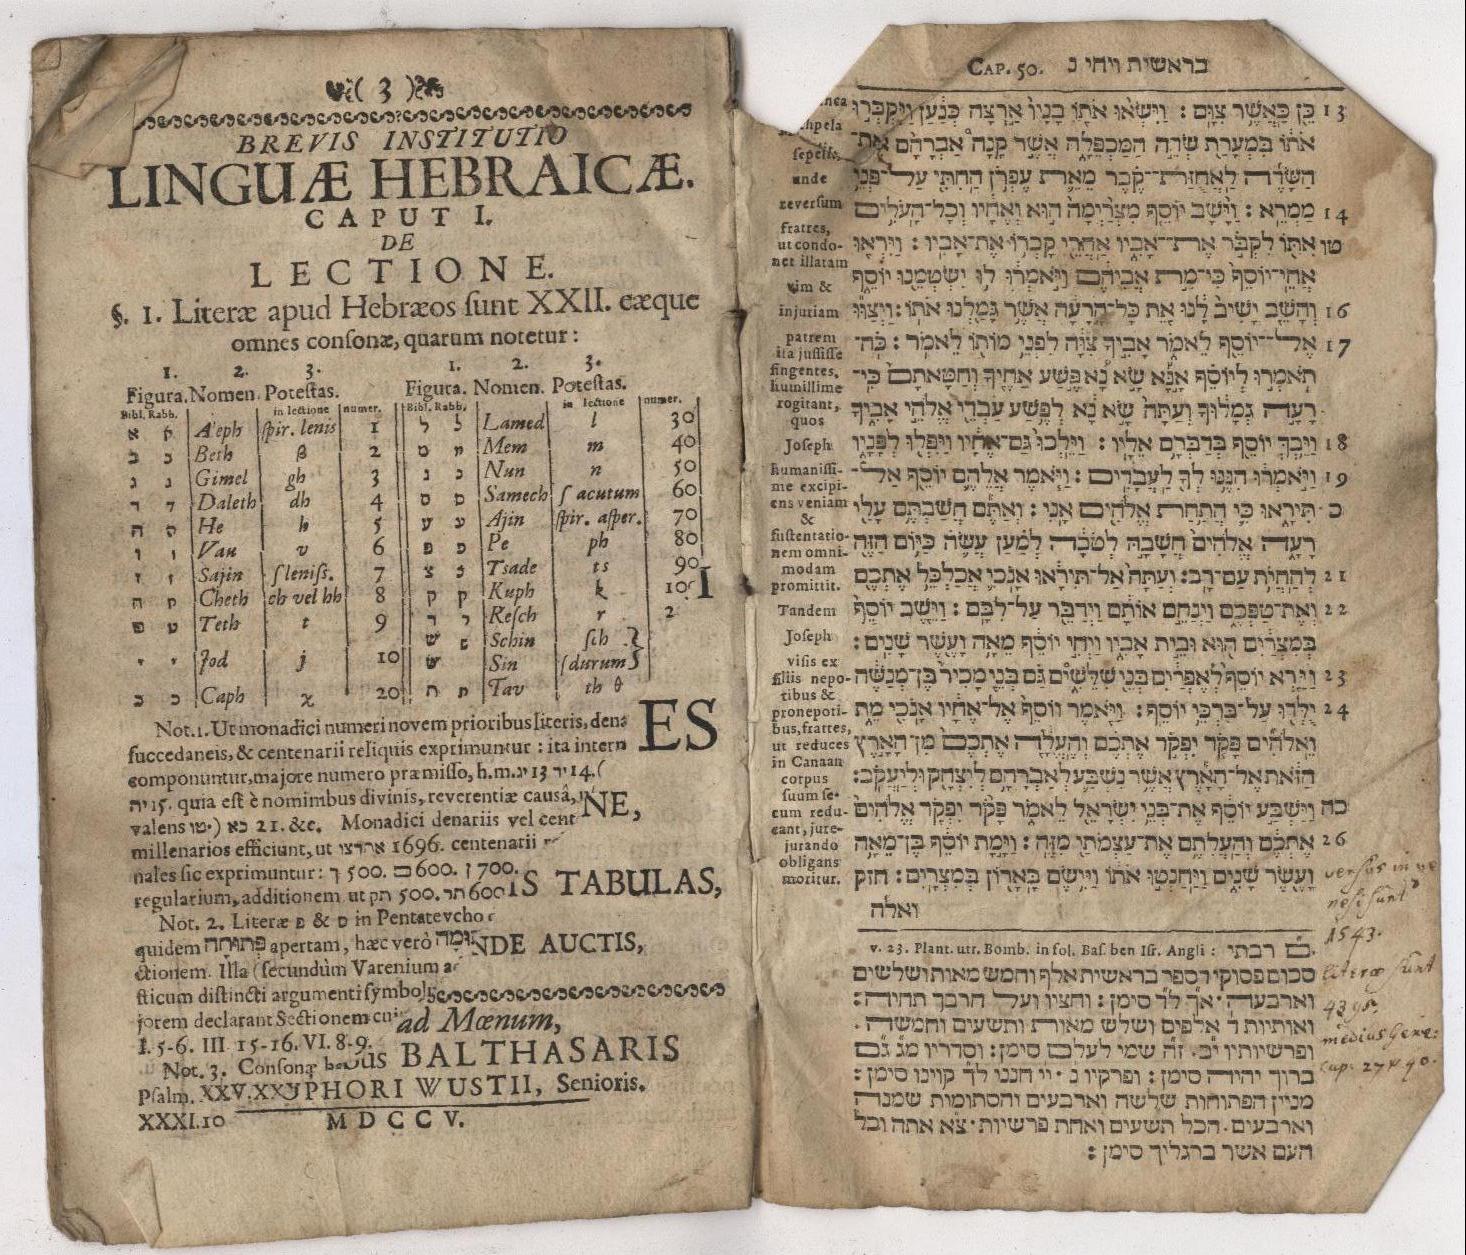 ( 3 )
BREVIS INSTITUTIO
LINGUÆ HEBRAICÆ.
CAPUT I.
DE
LECTIONE.
§. 1. Literæ apud Hebræos sunt XXII. eæque
omnes consonæ, quarum notetur:
1. 2. 3. 1. 2. 3.
Figura. Nomen. Potestas. Figura. Nomen. Potestas.
Bibl. Rabb. in lectione numer. Bibl. Rabb. in lectione numer.
א A'eph spir. lenis 1 ל Lamed l 30
ב Beth β 2 מ Mem m 40
ג Gimel gh 3 נ Nun n 50
ד Daleth dh 4 ס Samech ſ acutum 60
ה He h 5 ע Ajin spir. asper. 70
ו Vau v 6 פ Pe ph 80
ז Sajin ſ leniſſ. 7 צ Tsade ts 90
ח Cheth ch vel hh 8 ק Kuph k 10 I
ט Teth t 9 ר Resch r 2
ש Schin sch
י Jod j 10 ש Sin (durum
כ Caph χ 20 ת Tav th θ
Not. 1. Ut monadici numeri novem prioribus literis, dena ES
succedaneis, & centenarii reliquis exprimuntur: ita interm
componuntur, majore numero præmisso, h.m. יג 13 יד 14. (
יה 15. quia est è nominibus divinis, reverentiæ causâ, NE,
valens טו.) כא 21. &c. Monadici denariis vel cent
millenarios efficiunt, ut אתרצו 1696. centenarii
nales sic exprimuntur: ך 500. ם 600. ן 700.
regularium, additionem ut תק 500. תר 600 IS TABULAS,
Not. 2. Literæ פ & ס in Pentatevcho
quidem פְּתוּחָה apertam, hæc verò NDE AUCTIS,
ctionem. Illa (secundùm Varenium a
sticum distincti argumenti symbol
jorem declarant Sectionem cu ad Mœnum,
I. 5-6. III 15-16. VI. 8-9.
Not. 3. Consonæ BALTHASARIS
Psalm. XXV. XX PHORI WUSTII, Senioris.
XXXI. 10 MDCCV.
CAP. 50. בראשית ויחי נ
13 כֵּן כַּאֲשֶׁר צִוָּם: וַיִּשְׂאוּ אֹתוֹ בָנָיו אַרְצָה כְּנַעַן וַיִּקְבְּרוּ
אֹתוֹ בִּמְעָרַת שְׂדֵה הַמַּכְפֵּלָה אֲשֶׁר קָנָה אַבְרָהָם אֶת־
הַשָּׂדֶה לַאֲחֻזַּת־קֶבֶר מֵאֵת עֶפְרֹן הַחִתִּי עַל־פְּנֵי
14 מַמְרֵא: וַיָּשָׁב יוֹסֵף מִצְרַיְמָה הוּא וְאֶחָיו וְכָל־הָעֹלִים
טו אִתּוֹ לִקְבֹּר אֶת־אָבִיו אַחֲרֵי קָבְרוֹ אֶת־אָבִיו: וַיִּרְאוּ
אֲחֵי־יוֹסֵף כִּי־מֵת אֲבִיהֶם וַיֹּאמְרוּ לוּ יִשְׂטְמֵנוּ יוֹסֵף
16 וְהָשֵׁב יָשִׁיב לָנוּ אֵת כָּל־הָרָעָה אֲשֶׁר גָּמַלְנוּ אֹתוֹ: וַיְצַוּוּ
17 אֶל־יוֹסֵף לֵאמֹר אָבִיךָ צִוָּה לִפְנֵי מוֹתוֹ לֵאמֹר: כֹּה־
תֹאמְרוּ לְיוֹסֵף אָנָּא שָׂא נָא פֶּשַׁע אַחֶיךָ וְחַטָּאתָם כִּי־
רָעָה גְמָלוּךָ וְעַתָּה שָׂא נָא לְפֶשַׁע עַבְדֵי אֱלֹהֵי אָבִיךָ
18 וַיֵּבְךְּ יוֹסֵף בְּדַבְּרָם אֵלָיו: וַיֵּלְכוּ גַּם־אֶחָיו וַיִּפְּלוּ לְפָנָיו
19 וַיֹּאמְרוּ הִנֶּנּוּ לְךָ לַעֲבָדִים: וַיֹּאמֶר אֲלֵהֶם יוֹסֵף אַל־
כ תִּירָאוּ כִּי הֲתַחַת אֱלֹהִים אָנִי: וְאַתֶּם חֲשַׁבְתֶּם עָלַי
רָעָה אֱלֹהִים חֲשָׁבָהּ לְטֹבָה לְמַעַן עֲשֹׂה כַּיּוֹם הַזֶּה
21 לְהַחֲיֹת עַם־רָב: וְעַתָּה אַל־תִּירָאוּ אָנֹכִי אֲכַלְכֵּל אֶתְכֶם
22 וְאֶת־טַפְּכֶם וַיְנַחֵם אוֹתָם וַיְדַבֵּר עַל־לִבָּם: וַיֵּשֶׁב יוֹסֵף
בְּמִצְרַיִם הוּא וּבֵית אָבִיו וַיְחִי יוֹסֵף מֵאָה וָעֶשֶׂר שָׁנִים:
23 וַיַּרְא יוֹסֵף לְאֶפְרַיִם בְּנֵי שִׁלֵּשִׁים גַּם בְּנֵי מָכִיר בֶּן־מְנַשֶּׁה
24 יֻלְּדוּ עַל־בִּרְכֵּי יוֹסֵף: וַיֹּאמֶר יוֹסֵף אֶל־אֶחָיו אָנֹכִי מֵת
וֵאלֹהִים פָּקֹד יִפְקֹד אֶתְכֶם וְהֶעֱלָה אֶתְכֶם מִן־הָאָרֶץ
הַזֹּאת אֶל־הָאָרֶץ אֲשֶׁר נִשְׁבַּע לְאַבְרָהָם לְיִצְחָק וּלְיַעֲקֹב:
כה וַיַּשְׁבַּע יוֹסֵף אֶת־בְּנֵי יִשְׂרָאֵל לֵאמֹר פָּקֹד יִפְקֹד אֱלֹהִים
26 אֶתְכֶם וְהַעֲלִתֶם אֶת־עַצְמֹתַי מִזֶּה: וַיָּמָת יוֹסֵף בֶּן־מֵאָה
וָעֶשֶׂר שָׁנִים וַיַּחַנְטוּ אֹתוֹ וַיִּישֶׂם בָּאָרוֹן בְּמִצְרָיִם: חזק
ואלה
nea
chpela
sepelit,
unde
reversum
fratres,
ut condo-
net illatam
vim &
injuriam
patrem
ita jussisse
fingentes,
humillime
rogitant,
quos
Joseph
humanissi-
me excipi-
ens veniam
&
sustentatio-
nem omni-
modam
promittit.
Tandem
Joseph
visis ex
filiis nepo-
tibus &
pronepoti-
bus, fratres,
ut reduces
in Canaan
corpus
suum se-
cum redu-
cant, jure-
jurando
obligans
moritur.
v. 23. Plant. utr. Bomb. in fol. Bas. ben Isr. Angli: ם רבתי
סכום פסוקי דספר בראשית אלף וחמש מאות ושלשים
וארבעה. אך לד סימן: וחציו ועל חרבך תחיה:
ואותיות ד אלפים ושלש מאות ותשעים וחמשה.
ופרשיותיו יב. זה שמי לעלם סימן: וסדריו מג גם
ברוך יהיה סימן: ופרקיו נ. יי חננו לך קוינו סימן:
מניין הפתוחות שלשה וארבעים והסתומות שמנה
וארבעים. הכל תשעים ואחת פרשיות. צא אתה וכל
העם אשר ברגליך סימן:
versus in
nesi sunt
1543.
literæ sunt
4395.
medius Gene:
cap. 27 v 40.